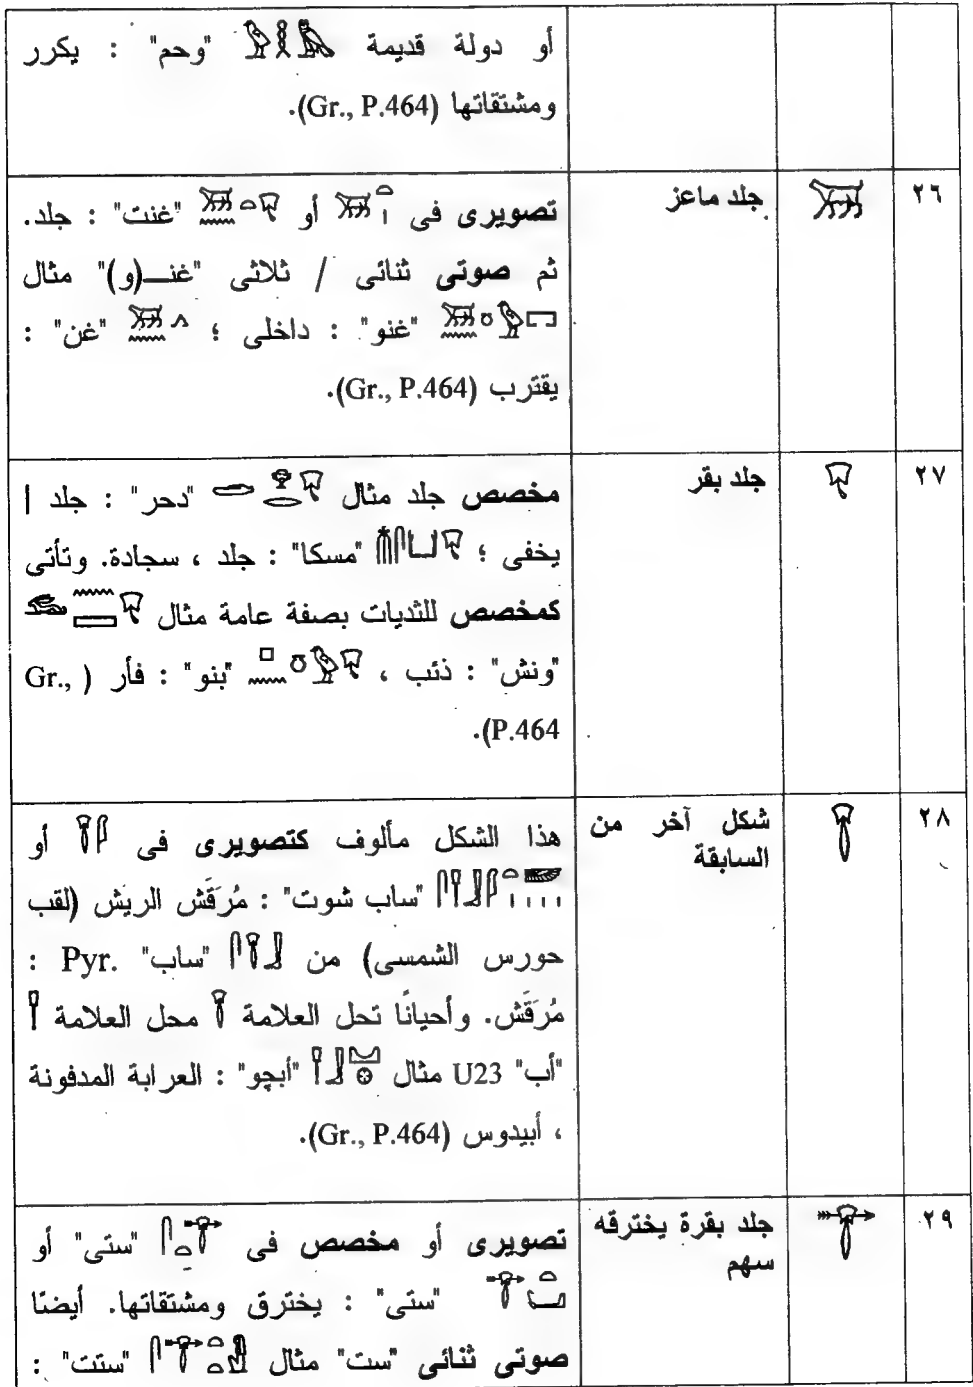 أو دولة قديمة "وحم" : يكرر
ومشتقاتها (Gr., P.464).
٢٦
جلد ماعز
تصويرى فى أو "غنت" : جلد.
ثم صوتى ثنائى / ثلاثى "غنـــ(و)" مثال
"غنو" : داخلى ؛ "غن" :
يقترب (Gr., P.464).
٢٧
جلد بقر
مخصص جلد مثال "دحر" : جلد |
يخفى ؛ "مسكا" : جلد ، سجادة. وتأتى
كمخصص للثديات بصفة عامة مثال
"ونش" : ذئب ، "بنو" : فأر (Gr.,
P.464).
٢٨
شكل آخر من
السابقة
هذا الشكل مألوف كتصويرى فى أو
"ساب شوت" : مُرَقَش الريَش (لقب
حورس الشمسى) من "ساب" Pyr. :
مُرَقَش. وأحيانًا تحل العلامة محل العلامة
"أب" U23 مثال "أبچو" : العرابة المدفونة
، أبيدوس (Gr., P.464).
٢٩
جلد بقرة يخترقه
سهم
تصويرى أو مخصص فى "ستى" أو
"ستى" : يخترق ومشتقاتها. أيضًا
صوتى ثنائى "ست" مثال "ستت" :